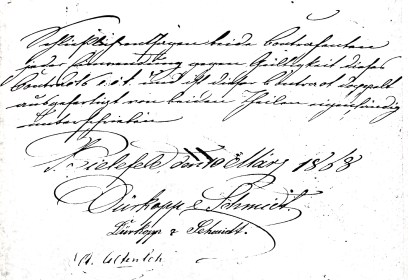 Schließlich entsagen beide Contrahenten
jeder Einwendung gegen Gültigkeit dieses
Contracts p.t. und ist dieser Contract doppelt
ausgefertigt von beiden Theilen eigenhändig
unterschrieben
Bielefeld, den 10 März 1868
Dürkopp & Schmidt.
Dürkopp & Schmidt.